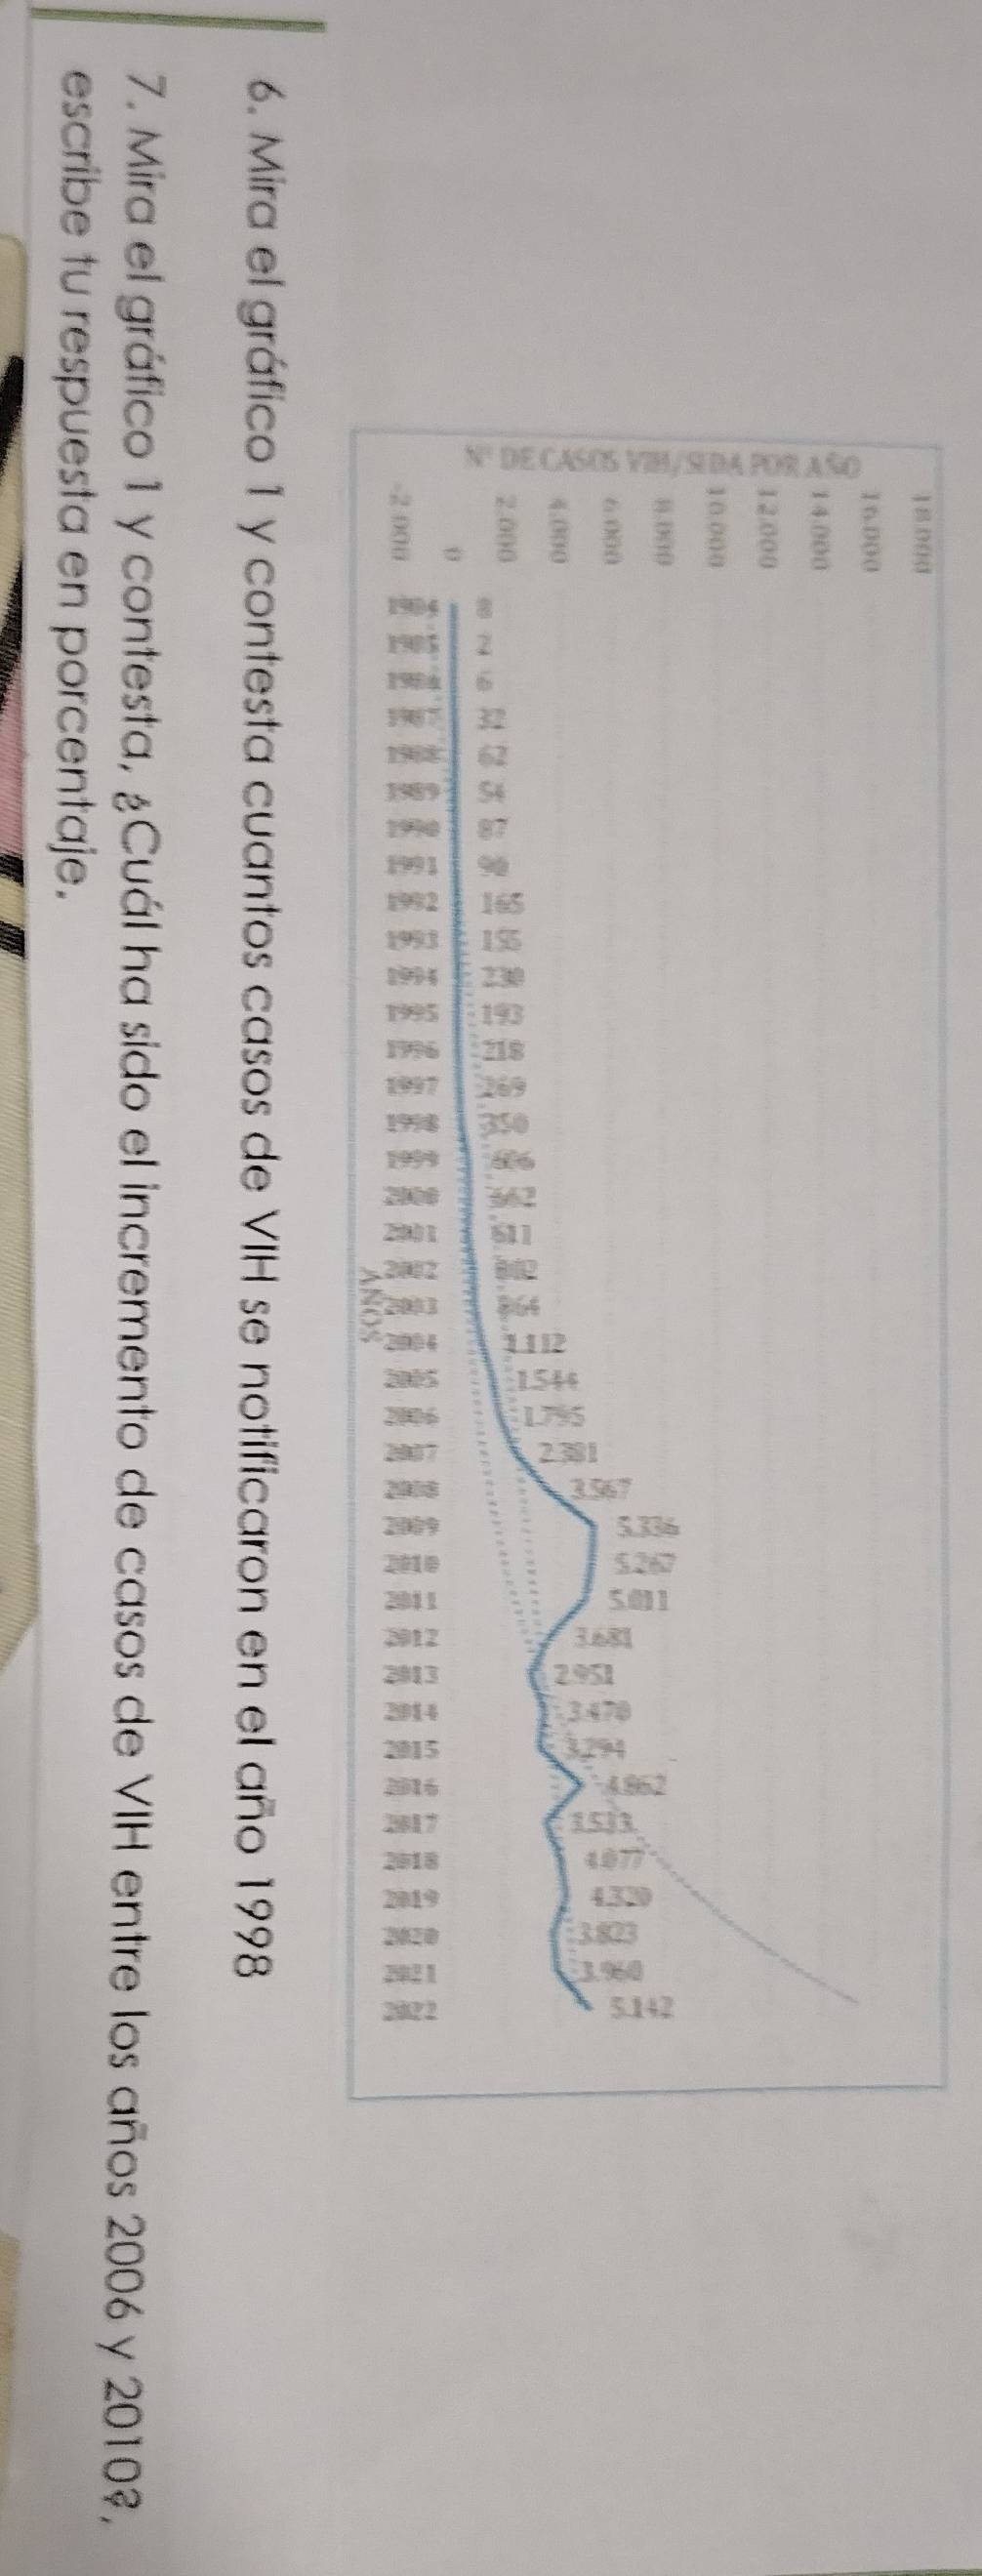 Nº DE CASOS VIH/SIDA POR AÑO
18.000
16.000
14.000
12.000
10.000
8.000
6.000
4.000
2.000
0
-2.000
8 2 6 32 62 54 87 90 165 155 230 193 218 269 350 606 662 611 802 864 1.112 1.544 1.795 2.381 3.567 5.336 5.267 5.011 3.681 2.951 3.470 3.294 4.862 3.533 4.077 4.320 3.823 3.960 5.142
1984 1985 1986 1987 1988 1989 1990 1991 1992 1993 1994 1995 1996 1997 1998 1999 2000 2001 2002 2003 2004 2005 2006 2007 2008 2009 2010 2011 2012 2013 2014 2015 2016 2017 2018 2019 2020 2021 2022
AÑOS
6. Mira el gráfico 1 y contesta cuantos casos de VIH se notificaron en el año 1998
7. Mira el gráfico 1 y contesta, ¿Cuál ha sido el incremento de casos de VIH entre los años 2006 y 2010?,
escribe tu respuesta en porcentaje.